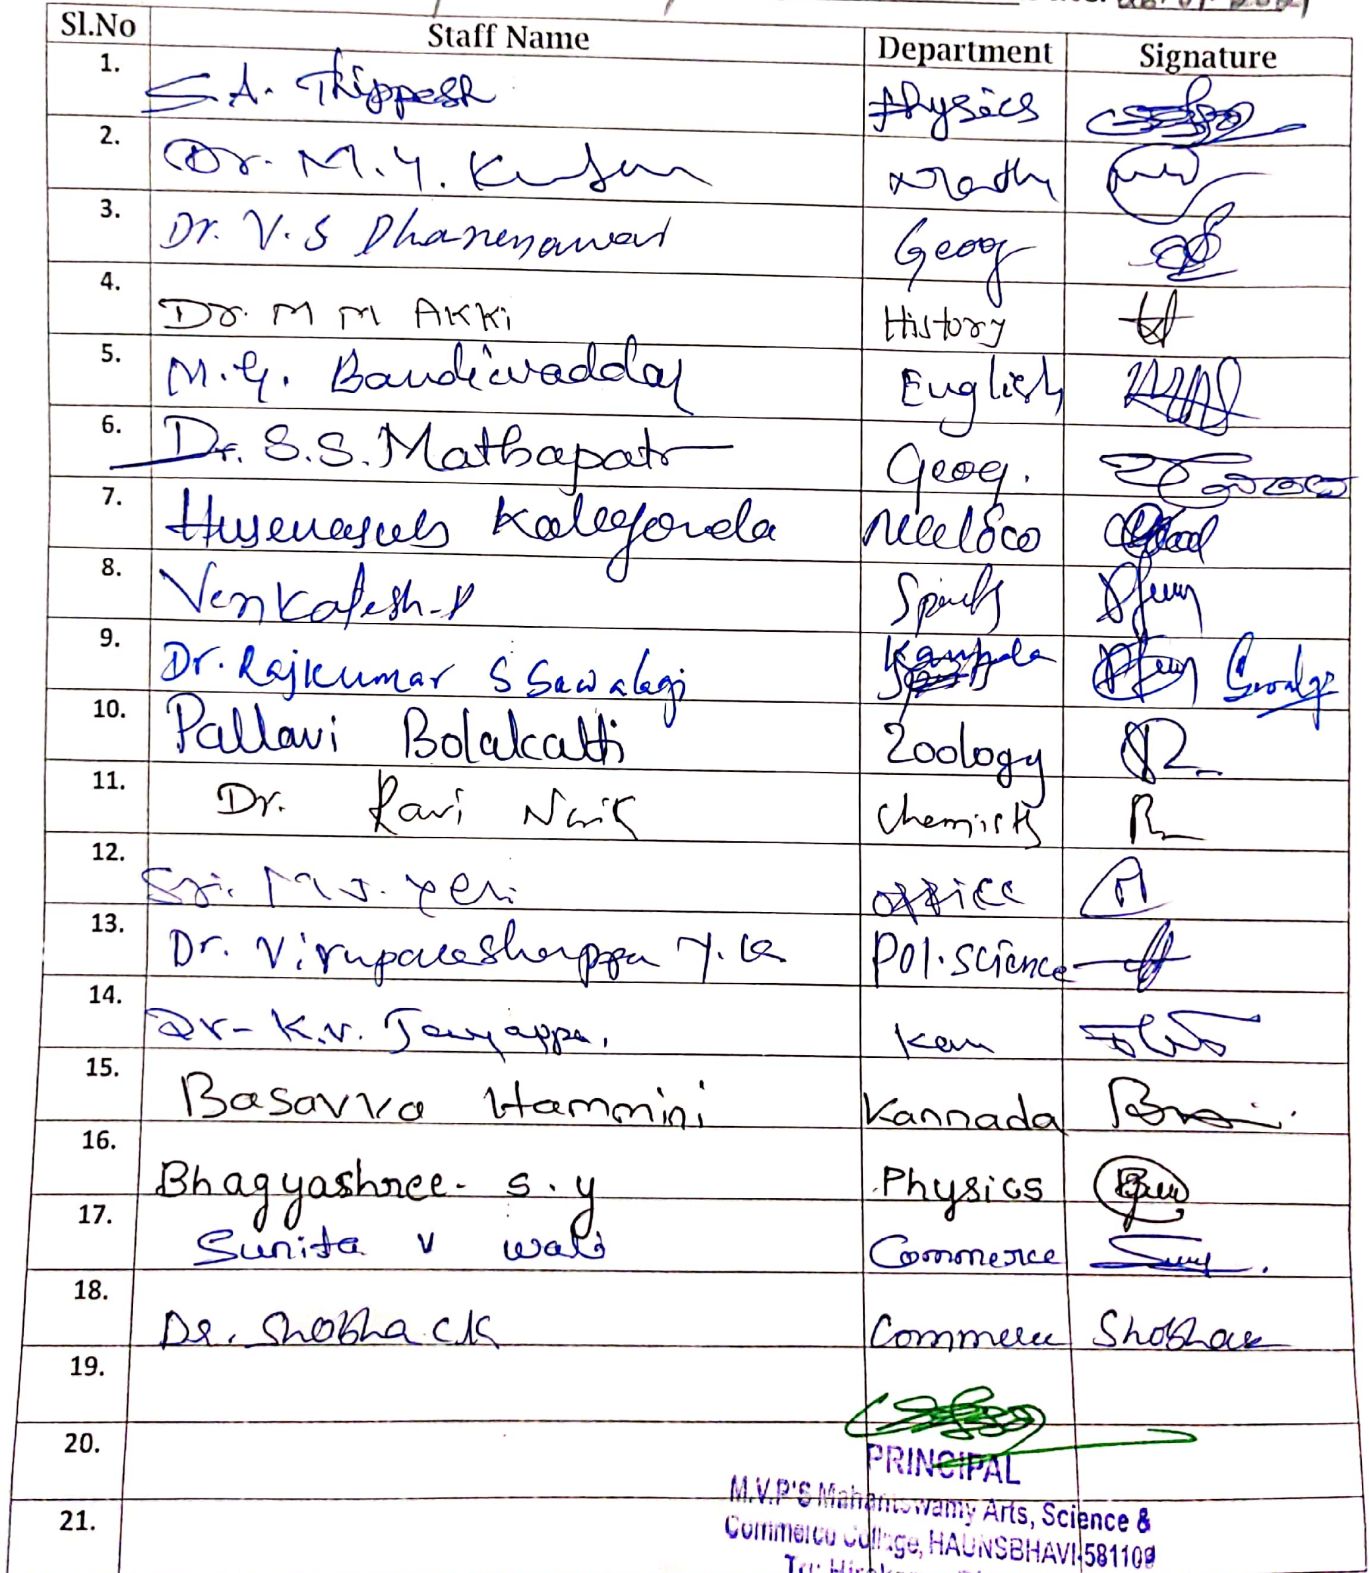 Sl.No Staff Name Department Signature
1. S.A. Thippesh Physics
2. Dr. M.Y. Math
3. Dr. V.S Dhanenawar Geog
4. Dr. M M AKKi History
5. M.G. Bandiwaddar English
6. Dr. S.S. Mathapati Geog.
7. Kalegonda
8. Venkatesh-P Sports
9. Dr. Rajkumar S Sawalagi Kannada
10. Pallavi Bolakatti Zoology
11. Dr. Ravi Naik Chemistry
12. Sri. M J. Yeri office
13. Dr. Virupakeshappa Y. K Pol. Science
14. Dr- K.N. Kan
15. Basavva Hammini Kannada
16. Bhagyashree. S. y Physics
17. Sunita V wali Commerce
18. Dr. Shobha C.K Commerce
19.
20.
PRINCIPAL
M.V.P'S Mahantswamy Arts, Science &
21.
Commerce College, HAUNSBHAVI-581109